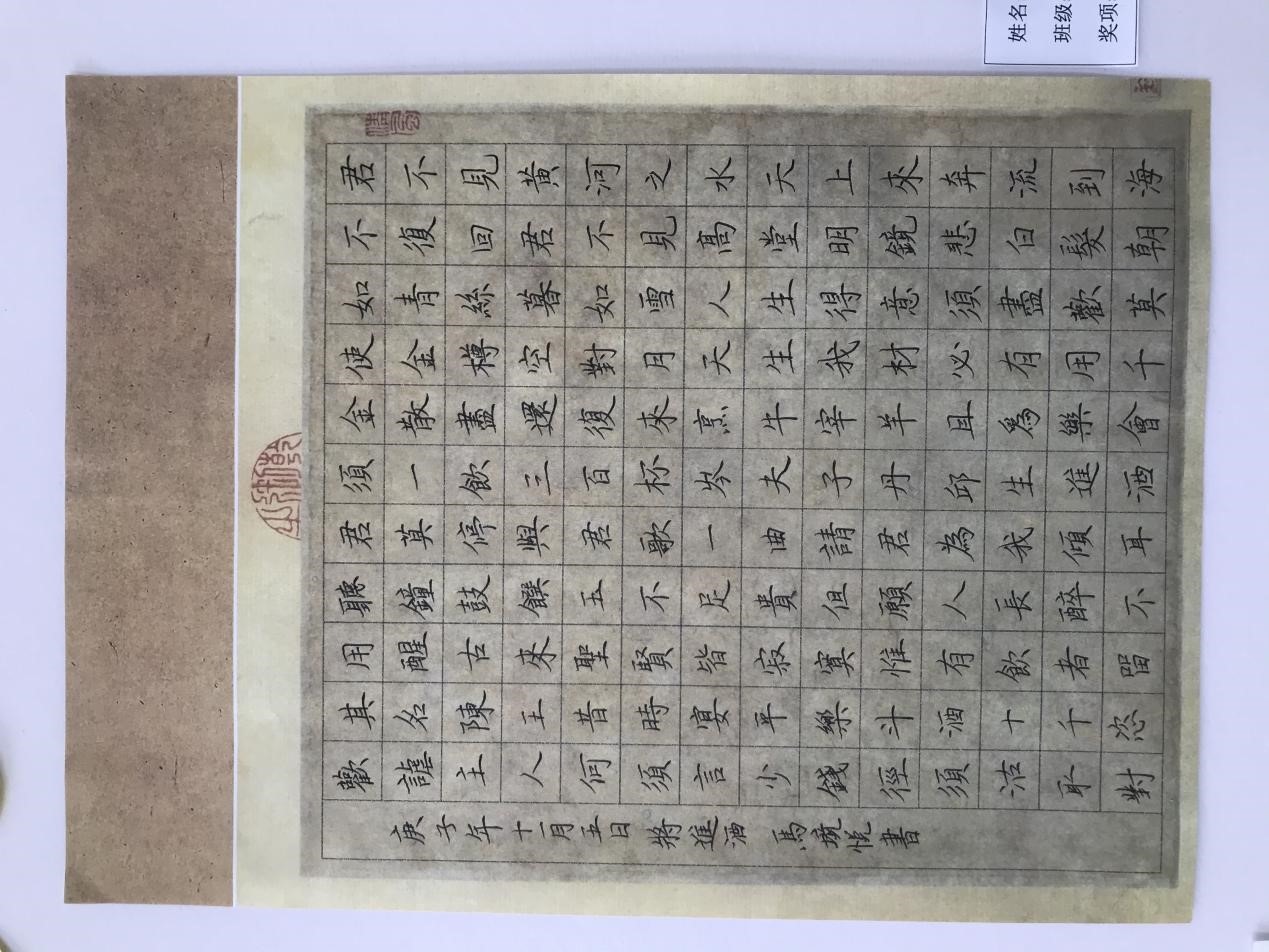 君不見黃河之水天上來奔流到海
不復回君不見高堂明鏡悲白髮朝
如青絲暮如雪人生得意須盡歡莫
使金樽空對月天生我材必有用千
金散盡還復來烹牛宰羊且爲樂會
須一飲三百杯岑夫子丹邱生進酒
君莫停與君歌一曲請君為我傾耳
聽鐘鼓饌玉不足貴但願人長醉不
用醒古來聖賢皆寂寞惟有飲者畱
其名陳王昔時宴平樂斗酒十千恣
歡謔主人何須言少錢徑須沽取對
庚子年十一月五日 將進酒 馬境悅書
姓名
班级
奖项